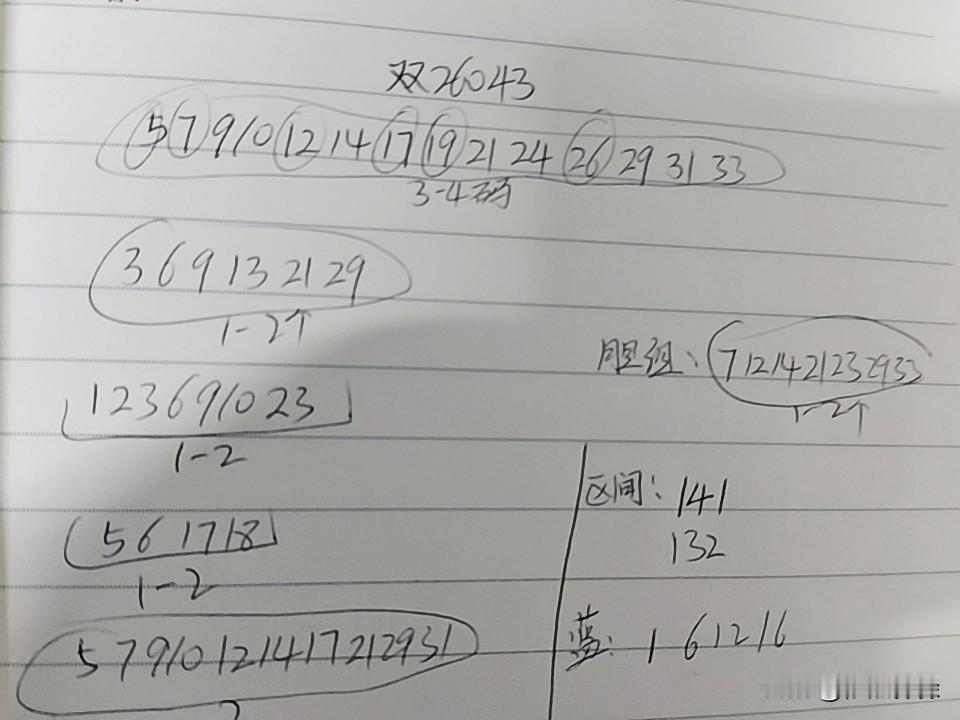 双26043
5 7 9 10 12 14 17 19 21 24 26 29 31 33
3-4码
3 6 9 13 21 29
1-2个
胆组: 7 12 14 21 23 29 33
1-2个
1 2 3 6 9 10 23
1-2
区间: 141
132
5 6 17 18
1-2
5 7 9 10 12 14 17 21 29 31
蓝: 1 6 12 16